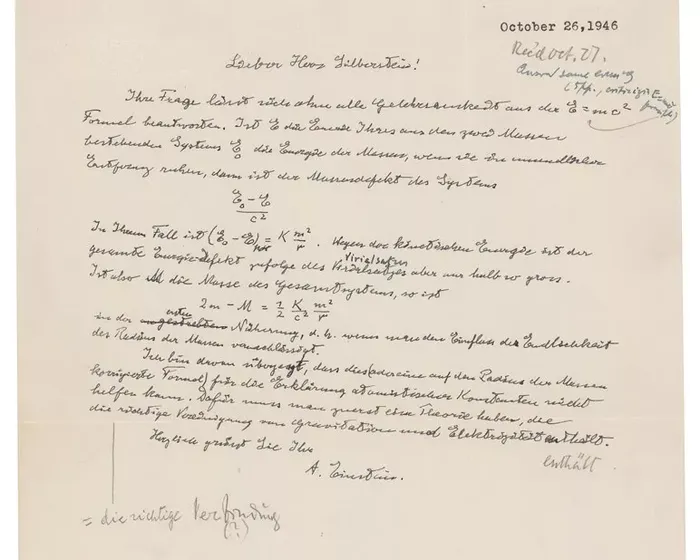 October 26, 1946
Rec'd Oct. 27.
Lieber Herr Silberstein!
Ihre Frage lässt sich ohne alle Gelehrsamkeit aus der E = mc²
Formel beantworten. Ist E die Energie Ihres aus den zwei Massen
bestehenden Systems E₀ die Energie der Massen, wenn sie in unendlicher
Entfernung ruhen, dann ist der Massendefekt des Systems
E₀ - E
c²
In Ihrem Fall ist (E₀ - E) = K m²/r . Wegen der kinetischen Energie ist der
Virialsatzes
gesamte Energiedefekt zufolge des aber nur halb so gross.
Ist also M die Masse des Gesamtsystems, so ist
2m - M = 1/2 K/c² m²/r
ersten
in der Näherung, d. h. wenn man den Einfluss der Endlichkeit
des Radius der Massen vernachlässigt.
Ich bin davon überzeugt, dass dies (oder eine auf den Radius der Massen
korrigierte Formel) für die Erklärung atomistischer Konstanten nicht
helfen kann. Dafür muss man zuerst eine Theorie haben, die
die richtige Vereinigung von Gravitation und Elektrizität enthält.
enthält
Herzlich grüsst Sie Ihr
A. Einstein.
= die richtige Verbindung
(?)